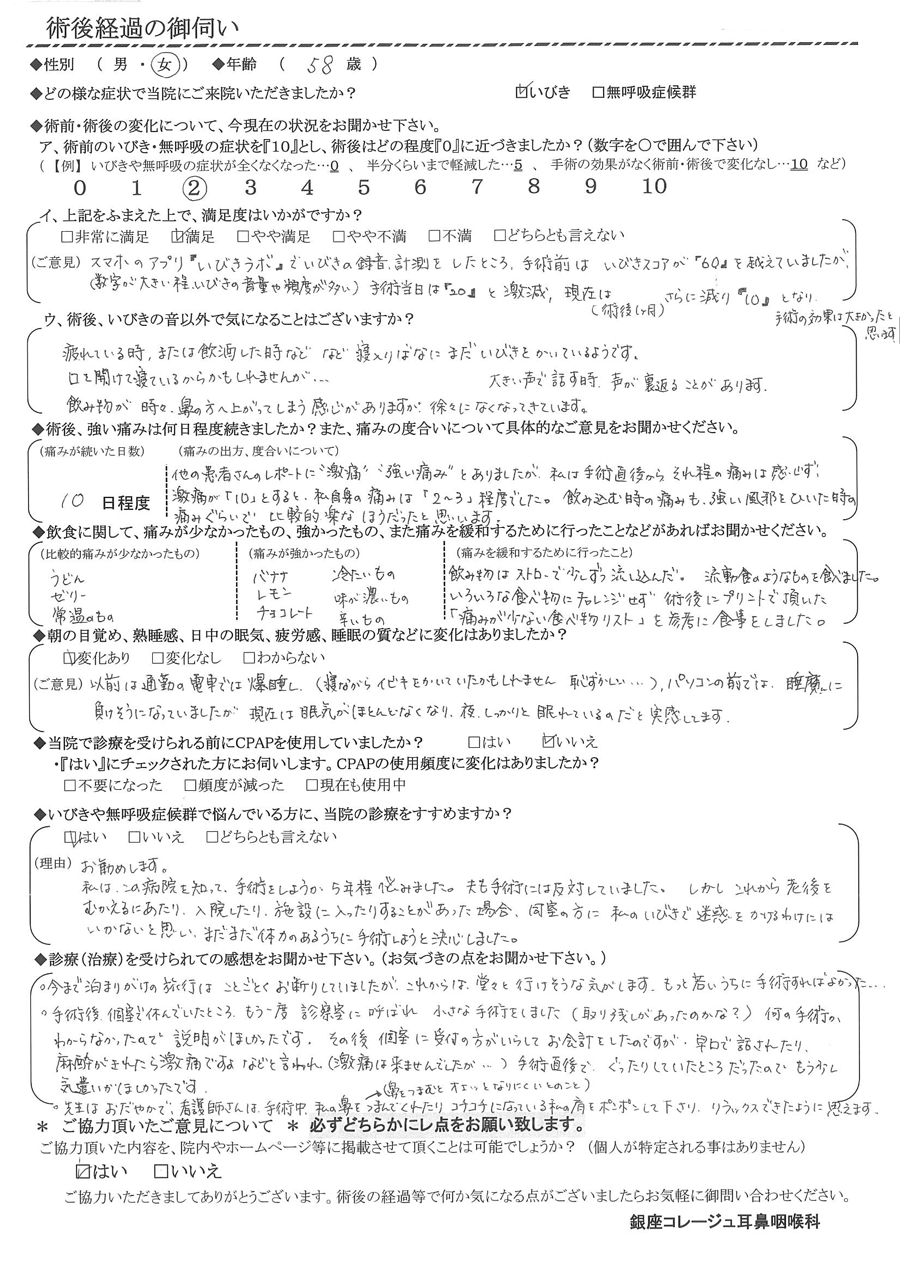 術後経過の御伺い
◆性別 （ 男 ・ 女 ） ◆年齢 （ 58 歳 ）
◆どの様な症状で当院にご来院いただきましたか？ ☑いびき □無呼吸症候群
◆術前・術後の変化について、今現在の状況をお聞かせ下さい。
ア、術前のいびき・無呼吸の症状を『10』とし、術後はどの程度『0』に近づきましたか？（数字を〇で囲んで下さい）
（【例】 いびきや無呼吸の症状が全くなくなった…0 、 半分くらいまで軽減した…5 、 手術の効果がなく術前・術後で変化なし…10 など）
0 1 ② 3 4 5 6 7 8 9 10
イ、上記をふまえた上で、満足度はいかがですか？
□非常に満足 ☑満足 □やや満足 □やや不満 □不満 □どちらとも言えない
（ご意見） スマホのアプリ『いびきラボ』でいびきの録音、計測をしたところ、手術前は いびきスコアが『60』を越えていましたが、
（数字が大きい程、いびきの音量や頻度が多い） 手術当日は『20』と激減、現在は（術後1ヶ月）さらに減り『10』となり、
手術の効果は大きかったと
思います
ウ、術後、いびきの音以外で気になることはございますか？
疲れている時、または飲酒した時など など 寝入りばなに まだ いびきをかいているようです。
口を開けて寝ているからかもしれませんが… 大きい声で話す時、声が裏返ることがあります。
飲み物が 時々、鼻の方へ上がってしまう感じがありますが、徐々になくなってきています。
◆術後、強い痛みは何日程度続きましたか？また、痛みの度合いについて具体的なご意見をお聞かせください。
（痛みが続いた日数） （痛みの出方、度合いについて）
他の患者さんのレポートに“激痛”“強い痛み”とありましたが、私は手術直後から それ程の痛みは感じず、
10 日程度 激痛が「10」とすると、私自身の痛みは「2〜3」程度でした。飲み込む時の痛みも、強い風邪をひいた時の
痛みぐらいで 比較的 楽な ほうだったと思います。
◆飲食に関して、痛みが少なかったもの、強かったもの、また痛みを緩和するために行ったことなどがあればお聞かせください。
（比較的痛みが少なかったもの） （痛みが強かったもの） （痛みを緩和するために行ったこと）
うどん バナナ 冷たいもの 飲み物は ストローで少しずつ流し込んだ。 流動食のようなものを食べました。
ゼリー レモン 味が濃いもの いろいろな食べ物にチャレンジせず 術後にプリントで頂いた
常温のもの チョコレート 辛いもの 「痛みが少ない食べ物リスト」を参考に食事をしました。
◆朝の目覚め、熟睡感、日中の眠気、疲労感、睡眠の質などに変化はありましたか？
☑変化あり □変化なし □わからない
（ご意見） 以前は通勤の電車では爆睡し、（寝ながらイビキをかいていたかもしれません 恥ずかしい…）、パソコンの前では、睡魔に
負けそうになっていましたが 現在は眠気がほとんどなくなり、夜、しっかりと眠れているのだと実感してます。
◆当院で診療を受けられる前にCPAPを使用していましたか？ □はい ☑いいえ
・『はい』にチェックされた方にお伺いします。CPAPの使用頻度に変化はありましたか？
□不要になった □頻度が減った □現在も使用中
◆いびきや無呼吸症候群で悩んでいる方に、当院の診療をすすめますか？
☑はい □いいえ □どちらとも言えない
（理由） お勧めします。
私は、この病院を知って、手術をしようか 5年程 悩みました。夫も手術には反対していました。 しかし これから老後を
むかえるにあたり、入院したり、施設に入ったりすることがあった場合、同室の方に 私のいびきで迷惑をかけるわけには
いかないと思い、まだまだ体力のあるうちに手術しようと決心しました。
◆診療（治療）を受けられての感想をお聞かせ下さい。（お気づきの点をお聞かせ下さい。）
○今まで泊まりがけの旅行は ことごとくお断りしていましたが、これからは、堂々と行けそうな気がします。もっと若いうちに手術すればよかった…
○手術後、個室で休んでいたところ、もう一度 診察室に呼ばれ 小さな手術をしました（取り残しがあったのかな？）何の手術か、
わからなかったので 説明がほしかったです。その後 個室に受付の方がいらしてお会計をしたのですが 早口で話されたり、
麻酔がきれたら激痛ですよ などと言われ（激痛は来ませんでしたが…）手術直後で、ぐったりしていたところだったので もう少し
気遣いがほしかったです。 （鼻をつまむと オエッとなりにくいとのこと）
○先生はおだやかで、看護師さんは、手術中、私の鼻をつまんでくれたり、コチコチになっている私の肩をポンポンして下さり、リラックスできたように思えます。
＊ ご協力頂いたご意見について ＊ 必ずどちらかにレ点をお願い致します。
ご協力頂いた内容を、院内やホームページ等に掲載させて頂くことは可能でしょうか？ （個人が特定される事はありません）
☑はい □いいえ
ご協力いただきましてありがとうございます。術後の経過等で何か気になる点がございましたらお気軽に御問い合わせください。
銀座コレージュ耳鼻咽喉科